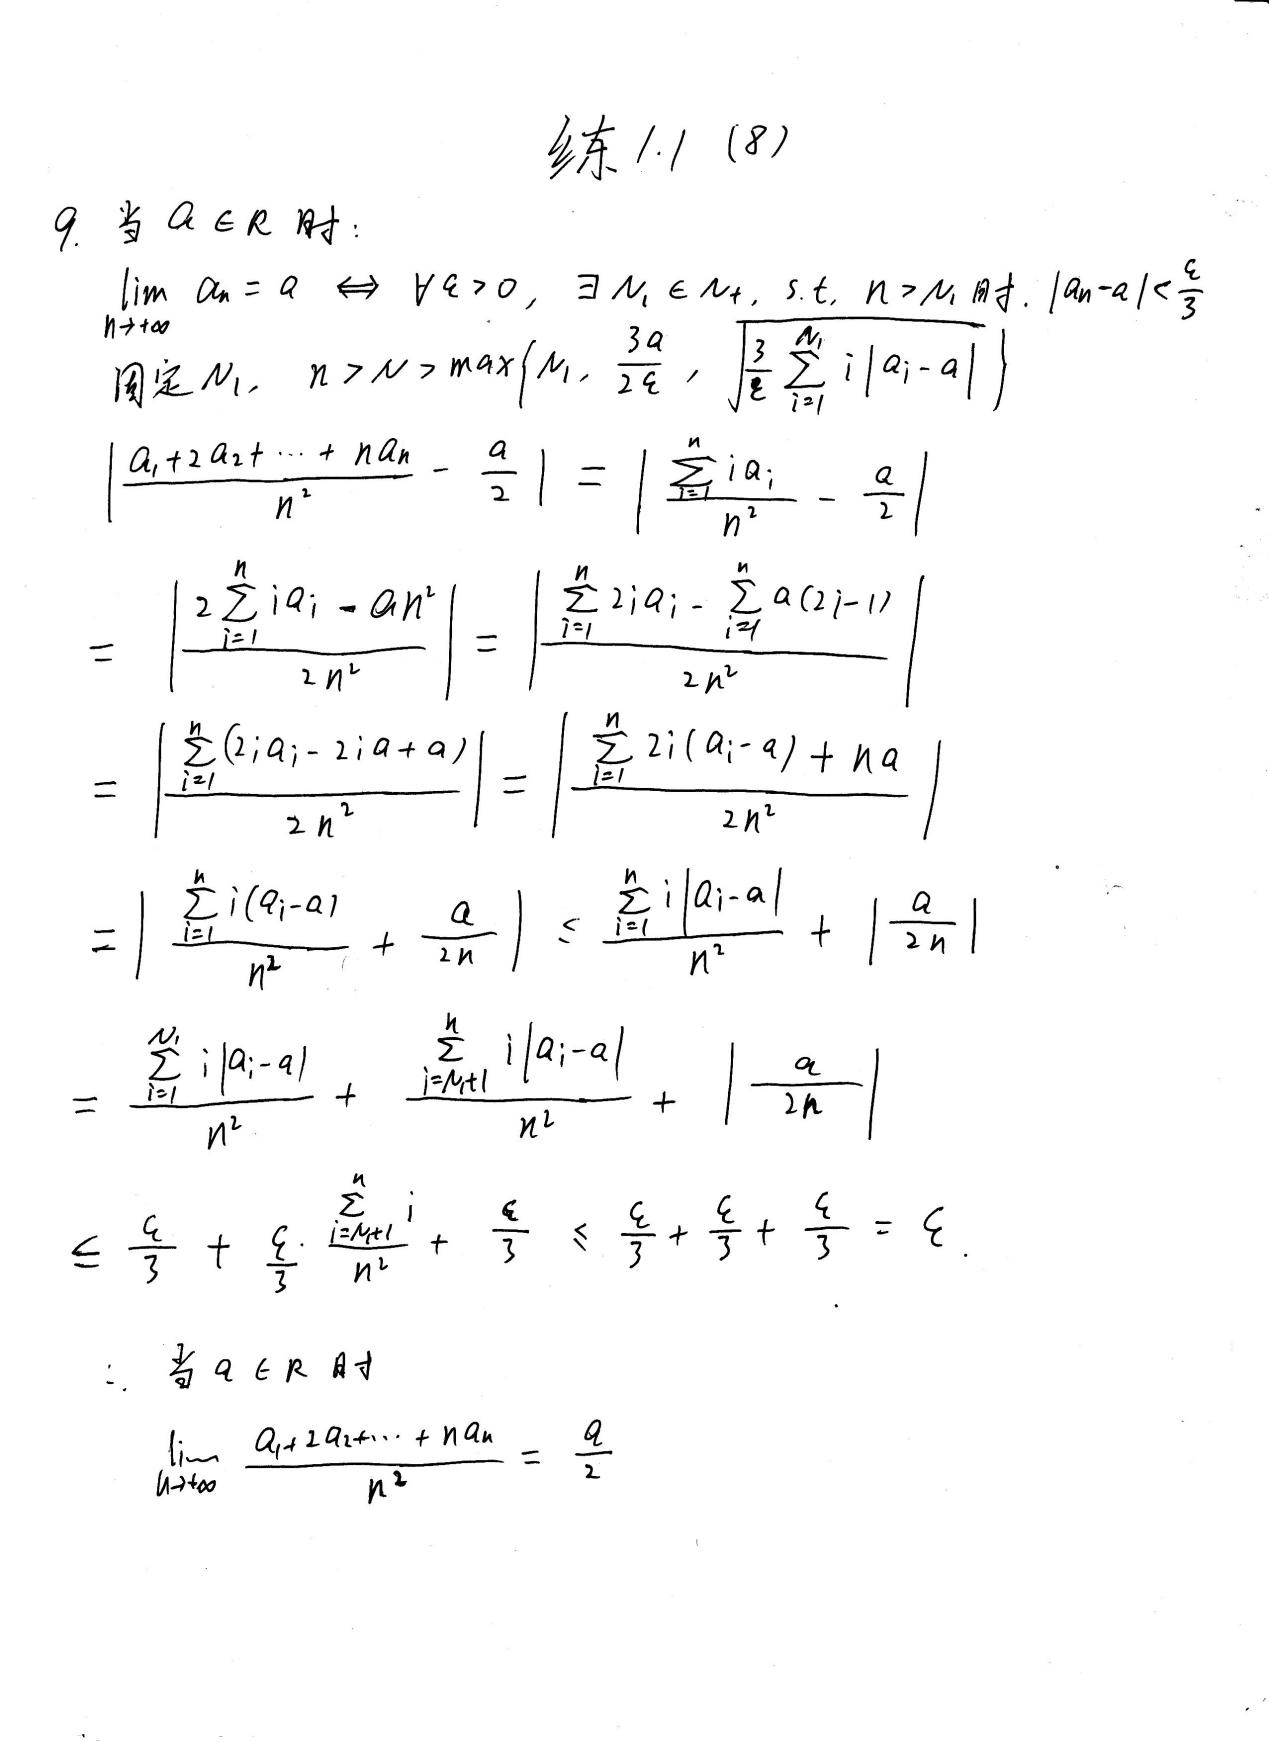 练1.1 (8)
9. 当 a ∈ R 时:
lim_{n→+∞} a_n = a ⇔ ∀ε>0, ∃ N₁ ∈ N₊, s.t. n>N₁ 时. |a_n-a|<ε/3
固定N₁, n>N>max{N₁, 3a/2ε, √(3/ε ∑_{i=1}^{N₁} i|a_i-a|)}
|(a₁+2a₂+⋯+na_n)/n² - a/2| = |(∑_{i=1}^{n} ia_i)/n² - a/2|
= |(2∑_{i=1}^{n} ia_i - an²)/2n²| = |(∑_{i=1}^{n} 2ia_i - ∑_{i=1}^{n} a(2i-1))/2n²|
= |(∑_{i=1}^{n} (2ia_i - 2ia + a))/2n²| = |(∑_{i=1}^{n} 2i(a_i-a) + na)/2n²|
= |(∑_{i=1}^{n} i(a_i-a))/n² + a/2n| ≤ (∑_{i=1}^{n} i|a_i-a|)/n² + |a/2n|
= (∑_{i=1}^{N₁} i|a_i-a|)/n² + (∑_{i=N₁+1}^{n} i|a_i-a|)/n² + |a/2n|
≤ ε/3 + ε/3 · (∑_{i=N₁+1}^{n} i)/n² + ε/3 ≤ ε/3 + ε/3 + ε/3 = ε.
∴ 当 a ∈ R 时
lim_{n→+∞} (a₁+2a₂+⋯+na_n)/n² = a/2